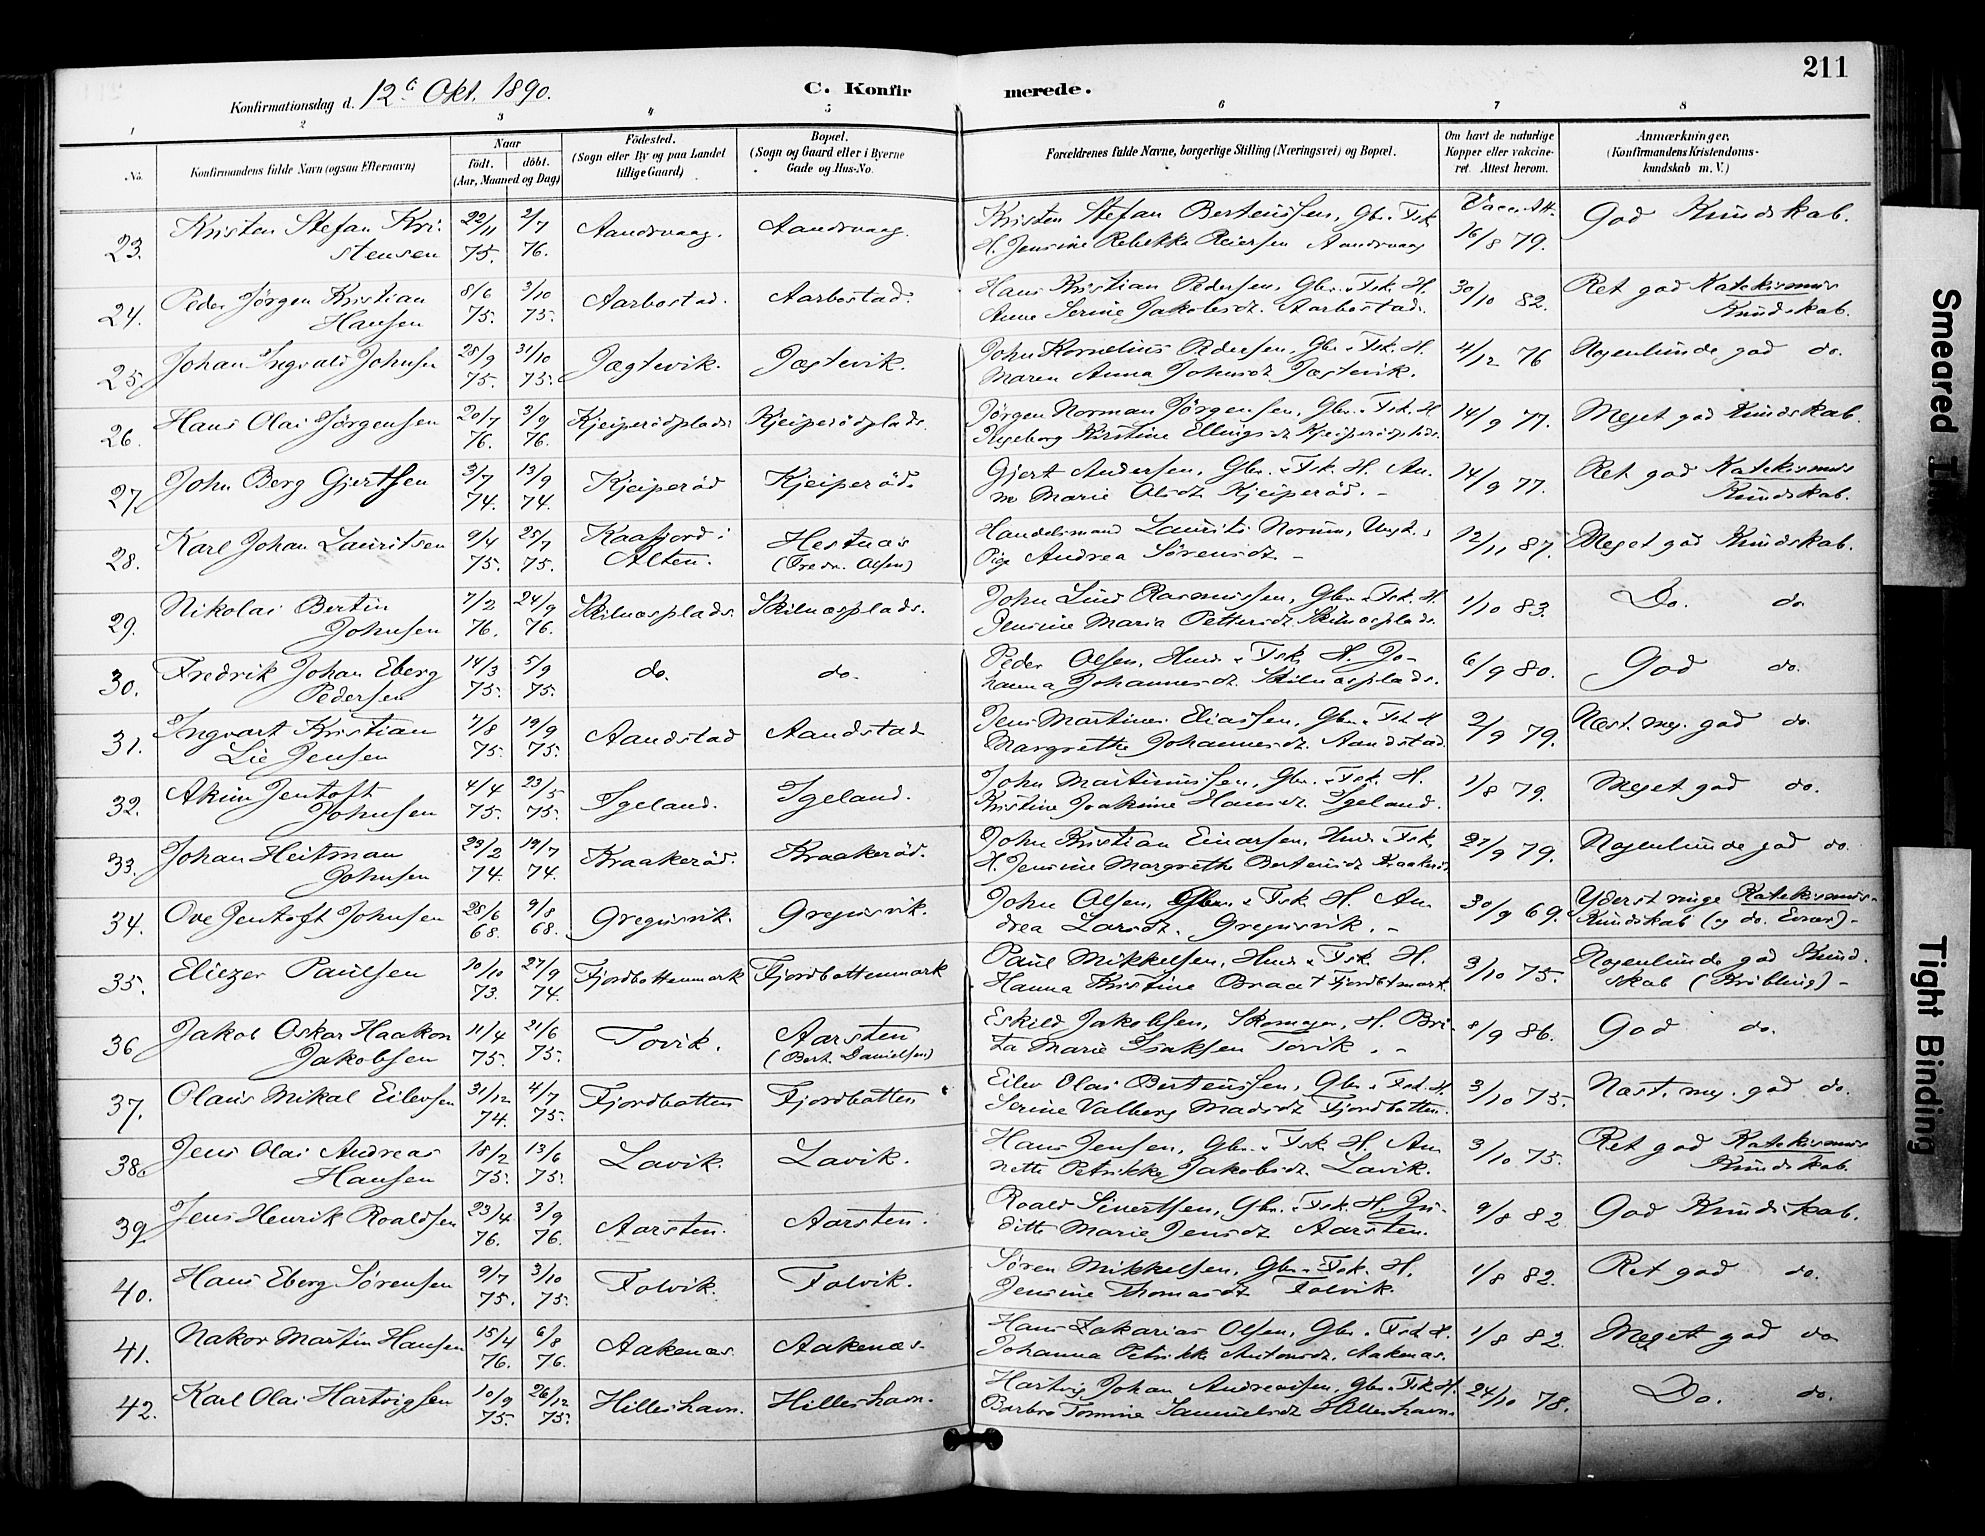 211
Konfirmationsdag d. 12te Okt. 1890.
C. Konfirmerede.
1 2 3 4 5 6 7 8
No.
Konfirmandens fulde Navn (ogsaa Efternavn)
Naar
födt. döbt.
(Aar, Maaned og Dag)
Födested.
(Sogn eller By og paa Landet
tillige Gaard)
Bopæl.
(Sogn og Gaard eller i Byerne
Gade og Hus-No.
Forældrenes fulde Navne, borgerlige Stilling (Næringsvei) og Bopæl.
Om havt de naturlige
Kopper eller vakcine-
ret. Attest herom.
Anmærkninger,
(Konfirmandens Kristendoms-
kundskab m. V.)
23. Kristen Stefan Kri- 22/11 2/7 Aandvaag. Aandvaag. Kristen Stefan Berteussen, Gbr. & Fisk. Vacc. Att. God Kundskab.
stensen 75. 76. H. Jensine Rebekka Reiersen Aandvaag 16/8 79.
24. Peder Jørgen Kristian 8/6 3/10 Aarbostad. Aarbostad. Hans Kristian Pedersen, Gbr. & Fsk. H. 30/10 82. Ret god Katekismus
Hansen 75. 75. Anne Serine Jakobsdt. Aarbostad. Kundskab.
25. Johan Ingvald Johnsen 28/9 31/10 Jægtevik. Jægtevik. John Kornelius Pedersen, Gbr. & Fsk. H. 4/12 76 Nogenlunde god do.
75. 75. Maren Anna Johnsdt. Jægtevik.
26. Hans Olai Jørgensen 20/7 3/9 Kjeiperødplads Kjeiperødplads. Jørgen Norman Jørgensen, Gbr. & Fsk. H 14/9 77. Meget god Kundskab.
76. 76. Ingeborg Kirstine Ellingsdt. Kjeiperødplads.
27. John Berg Gjertsen 3/7 13/9 Kjeiperød Kjeiperød. Gjert Andersen, Gbr. & Fsk. H. An- 14/9 77. Ret god Katekismus
74. 74. ne Marie Olsdt. Kjeiperød. - Kundskab.
28. Karl Johan Lauritsen 9/4 25/7 Kaafjord i Hestnæs Handelsmand Laurits Norum, Ungk. & 12/11 87. Meget god Kundskab.
75. 75. Alten. (Fredr. Olsen) Pige Andrea Sørensdt. -
29. Nikolai Bertin 7/2 24/9 Skilnæsplads. Skilnæsplads. John Lind Rasmussen, Gbr. & Fsk. H. 1/10 83. Do. do
Johnsen 76. 76. Jensine Maria Pettersdt. Skilnæsplads.
30. Fredrik Johan Eberg 14/3 5/9 do. do. Peder Olsen, Hmd. & Fsk. H. Jo- 6/9 80. God do.
Pedersen 75. 75. hanna Johannesdt. Skilnæsplads.
31. Ingvart Kristian 7/8 19/9 Aandstad Aandstad Jens Martinus Eliassen, Gbr. & Fsk. H 2/9 79. Næst. meg. god do.
Lie Jensen 75. 75. Margrethe Johannesdt. Aandstad.
32. Akim Jentoft 4/4 23/5 Igeland. Igeland. John Martinussen, Gbr. & Fsk. H. 1/8 79. Meget god do.
Johnsen 75. 75. Kristine Joakime Hansdt. Igeland.
33. Johan Heitman 23/2 19/7 Kraakerød. Kraakerød. John Kristian Einarsen, Hmd. & Fsk. 27/9 79. Nogenlunde god do.
Johnsen 74. 74. H. Jensine Margrethe Berteusdt. Kraakerød
34. Ove Jentoft Johnsen 28/6 9/8 Gregusvik. Gregusvik. John Olsen, Gbr. & Fsk. H. An- 30/9 69. Yderst ringe Katekismus-
68. 68. drea Larsdt. Gregusvik. - Kundskab (og do. Evner) -
35. Eliezer Paulsen 10/10 27/9 Fjordbottenmark Fjordbottenmark Paul Mikkelsen, Hmd. & Fsk. H. 3/10 75. Nogenlunde god Kund-
73. 74. Hanna Kristine Braat Fjordbtmark. skab (Krøbling) -
36. Jakob Oskar Haakon 11/4 21/6 Tovik. Aarsten Eskild Jakobsen, Skomager, H. Bri- 8/9 86. God do.
Jakobsen 75. 75. (Bert. Danielsen) ta Marie Isaksen Tovik. -
37. Olaus Mikal Eilevsen 31/12 4/7 Fjordbotten Fjordbotten Eilev Olai Berteussen, Gbr. & Fsk. H. 3/10 75. Næst. meg. god do.
74. 75. Serine Valberg Madsdt. Fjordbotten.
38. Jens Olai Andreas 18/2 13/6 Lavik. Lavik. Hans Jensen, Gbr. & Fsk. H. An- 3/10 75. Ret god Katekismus
Hansen 75. 75. nette Petrikke Jakobsdt. Lavik. Kundskab.
39. Jens Henrik Roaldsen 23/4 3/9 Aarsten. Aarsten. Roald Sivertsen, Gbr. & Fsk. H. Ju- 9/8 82 God Kundskab.
76. 76. ditte Marie Jensdt. Aarsten.
40. Hans Eberg Sørensen 9/7 3/10 Folvik. Folvik. Søren Mikkelsen, Gbr. & Fsk. H. 1/8 82. Ret god do.
75. 75. Jensine Thomasdt. Folvik.
41. Nakor Martin Hansen 15/4 6/8 Aakenæs. Aakenæs. Hans Zakarias Olsen, Gbr. & Fsk. H. 1/8 82. Meget god do
76. 76. Johanna Petrikke Antonsdt. Aakenæs.
42. Karl Olai Hartvigsen 10/9 26/12 Hilleshavn. Hilleshavn. Hartvig Johan Andreassen, Gbr. & Fsk. H. 24/10 78. Do. do.
75. 75. Barbro Tomine Samuelsdt. Hilleshavn.
Smeared
Tight Binding